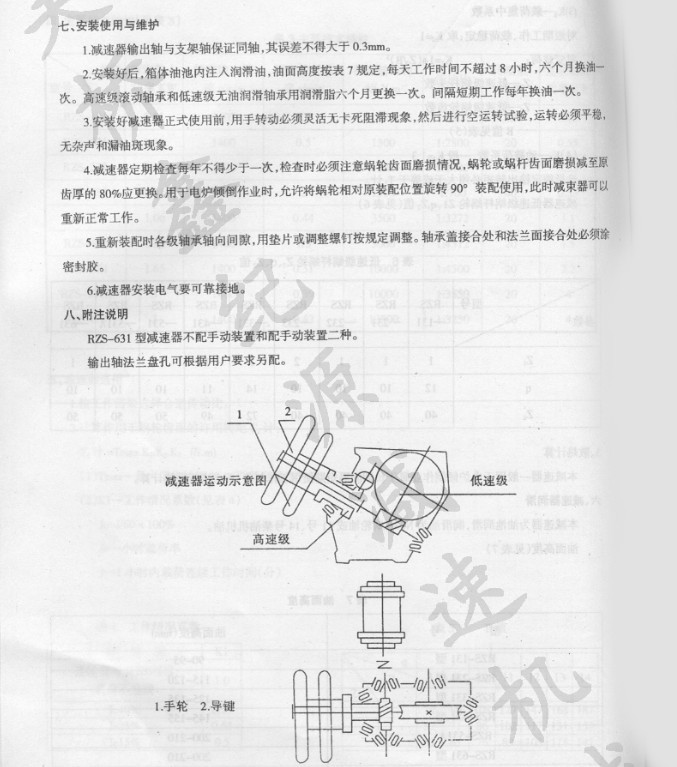 七、安装使用与维护
1.减速器输出轴与支架轴保证同轴,其误差不得大于0.3mm。
2.安装好后,箱体油池内注入润滑油,油面高度按表7规定,每天工作时间不超过8小时,六个月换油一
次。高速级滚动轴承和低速级无油润滑轴承用润滑脂六个月更换一次。间隔短期工作每年换油一次。
3.安装好减速器正式使用前,用手转动必须灵活无卡死阻滞现象,然后进行空运转试验,运转必须平稳,
无杂声和漏油斑现象。
4.减速器定期检查每年不得少于一次,检查时必须注意蜗轮齿面磨损情况,蜗轮或蜗杆齿面磨损减至原
齿厚的80%应更换。用于电炉倾倒作业时,允许将蜗轮相对原装配位置旋转90° 装配使用,此时减束器可以
重新正常工作。
5.重新装配时各级轴承轴向间隙,用垫片或调整螺钉按规定调整。轴承盖接合处和法兰面接合处必须涂
密封胶。
6.减速器安装电气要可靠接地。
八、附注说明
RZS–631型减速器不配手动装置和配手动装置二种。
输出轴法兰盘孔可根据用户要求另配。
1 2
减速器运动示意图
低速级
高速级
1.手轮 2.导键
鑫
纪
源
减
速
机